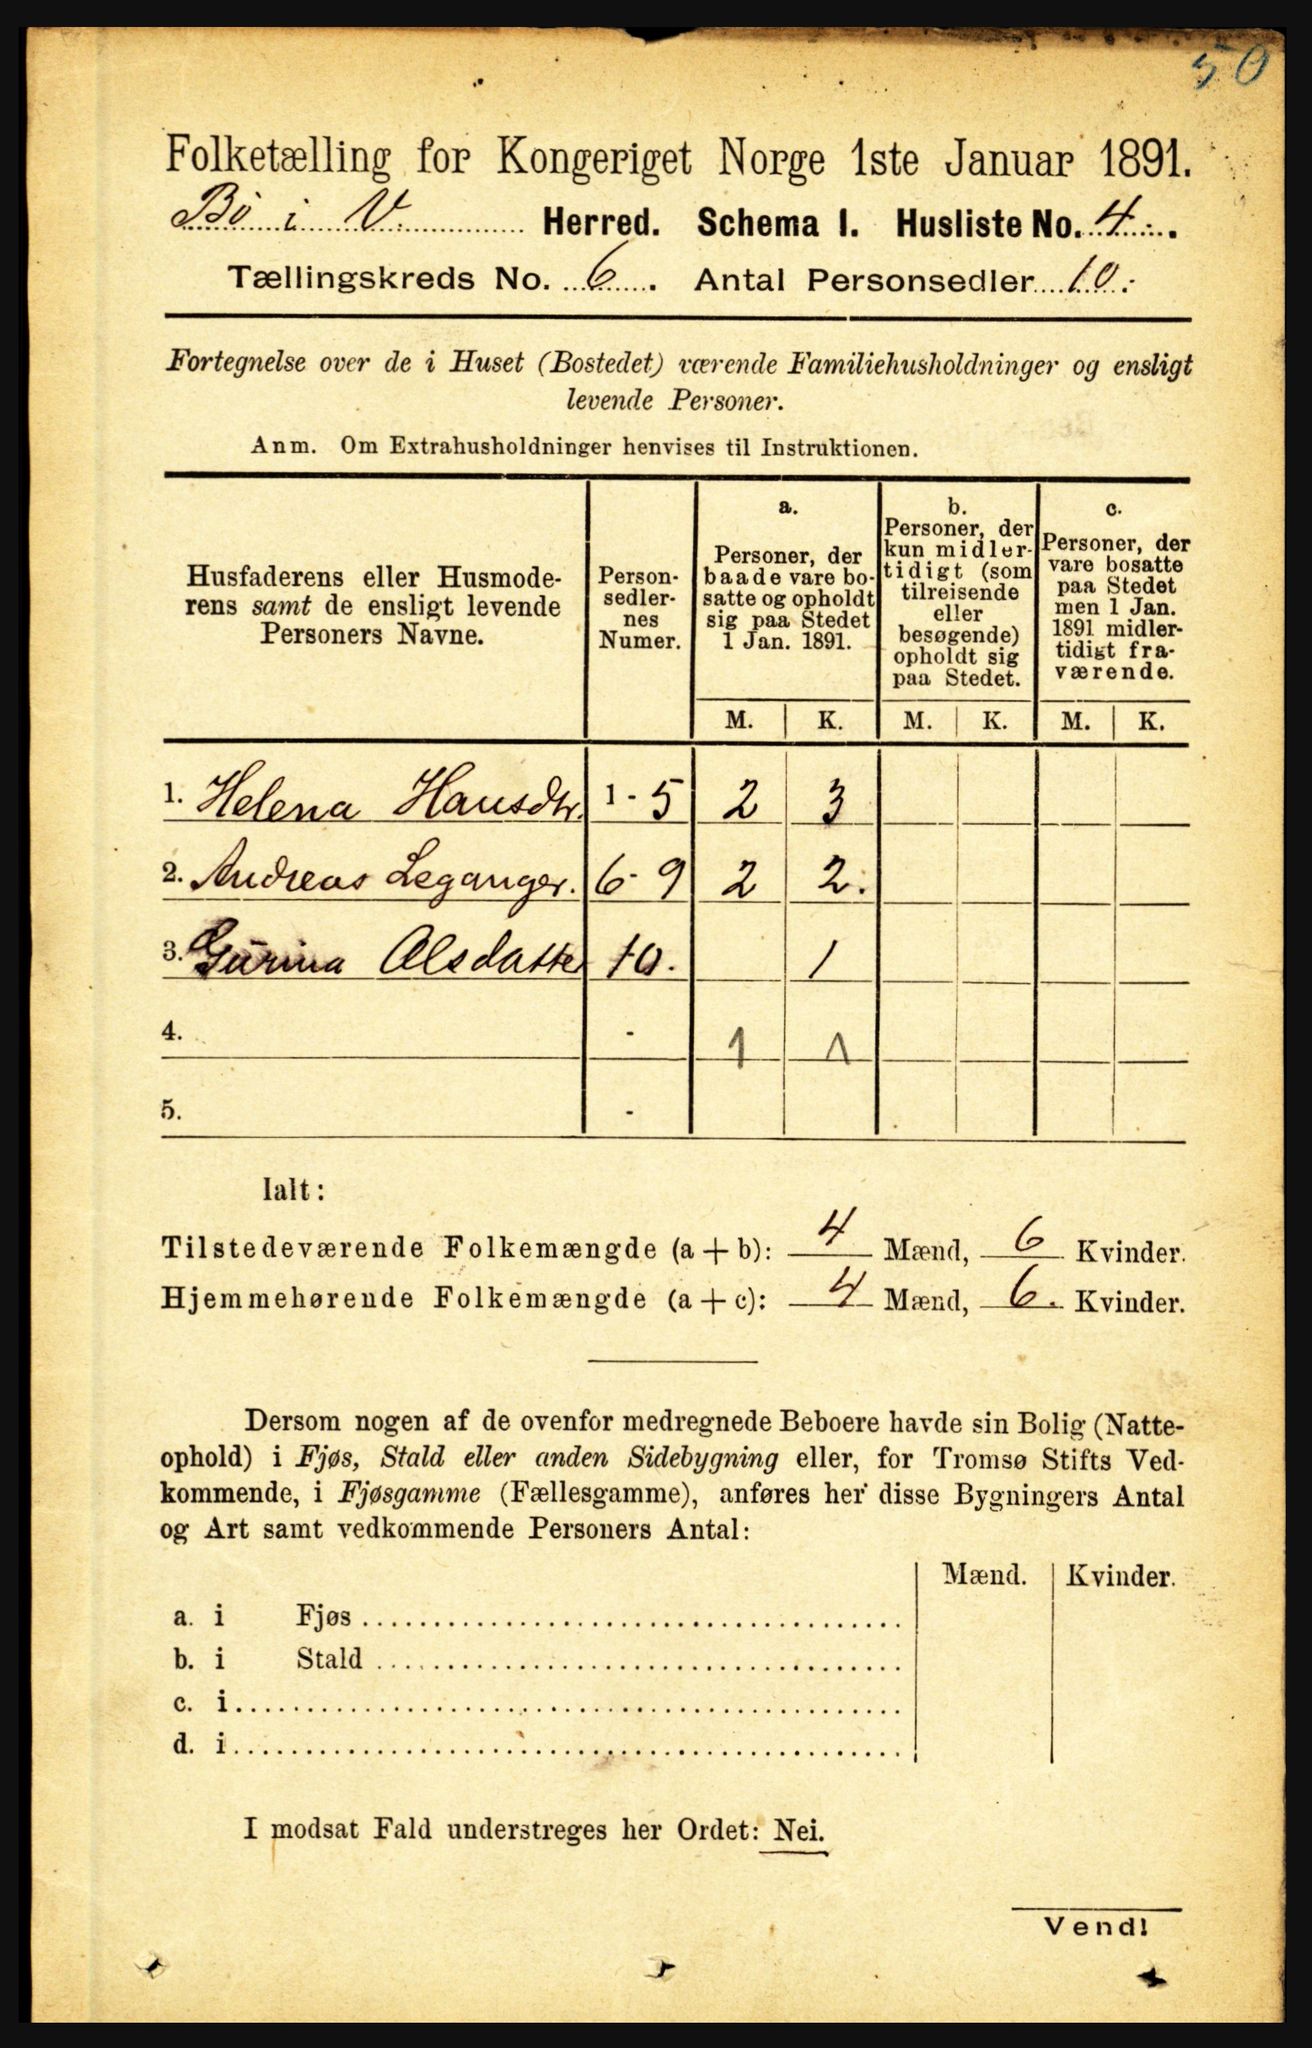 50
Folketælling for Kongeriget Norge 1ste Januar 1891.
Bø i V. Herred. Schema I. Husliste No. 4.
Tællingskreds No. 6. Antal Personsedler 10.
Fortegnelse over de i Huset (Bostedet) værende Familiehusholdninger og ensligt
levende Personer.
Anm. Om Extrahusholdninger henvises til Instruktionen.
Husfaderens eller Husmode-
rens samt de ensligt levende
Personers Navne.
Person-
sedler-
nes
Numer.
a.
Personer, der
baade vare bo-
satte og opholdt
sig paa Stedet
1 Jan. 1891.
b.
Personer, der
kun midler-
tidigt (som
tilreisende
eller
besøgende)
opholdt sig
paa Stedet.
c.
Personer, der
vare bosatte
paa Stedet
men 1 Jan.
1891 midler-
tidigt fra-
værende.
M. K. M. K. M. K.
1. Helena Hansdtr. 1 - 5 2 3
2. Andreas Leganger. 6 - 9 2 2.
3. Gurina Olsdatter 10. 1
4. - 1 1
5. -
Ialt:
Tilstedeværende Folkemængde (a + b): 4 Mænd, 6 Kvinder.
Hjemmehørende Folkemængde (a + c): 4 Mænd, 6. Kvinder.
Dersom nogen af de ovenfor medregnede Beboere havde sin Bolig (Natte-
ophold) i Fjøs, Stald eller anden Sidebygning eller, for Tromsø Stifts Ved-
kommende, i Fjøsgamme (Fællesgamme), anføres her disse Bygningers Antal
og Art samt vedkommende Personers Antal:
Mænd. Kvinder.
a. i Fjøs
b. i Stald
c. i
d. i
I modsat Fald understreges her Ordet: Nei.
Vend!